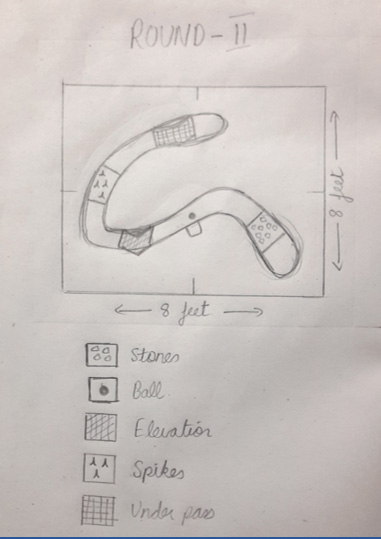 ROUND-II
8 feet
8 feet
Stones
Ball
Elevation
Spikes
Under pass